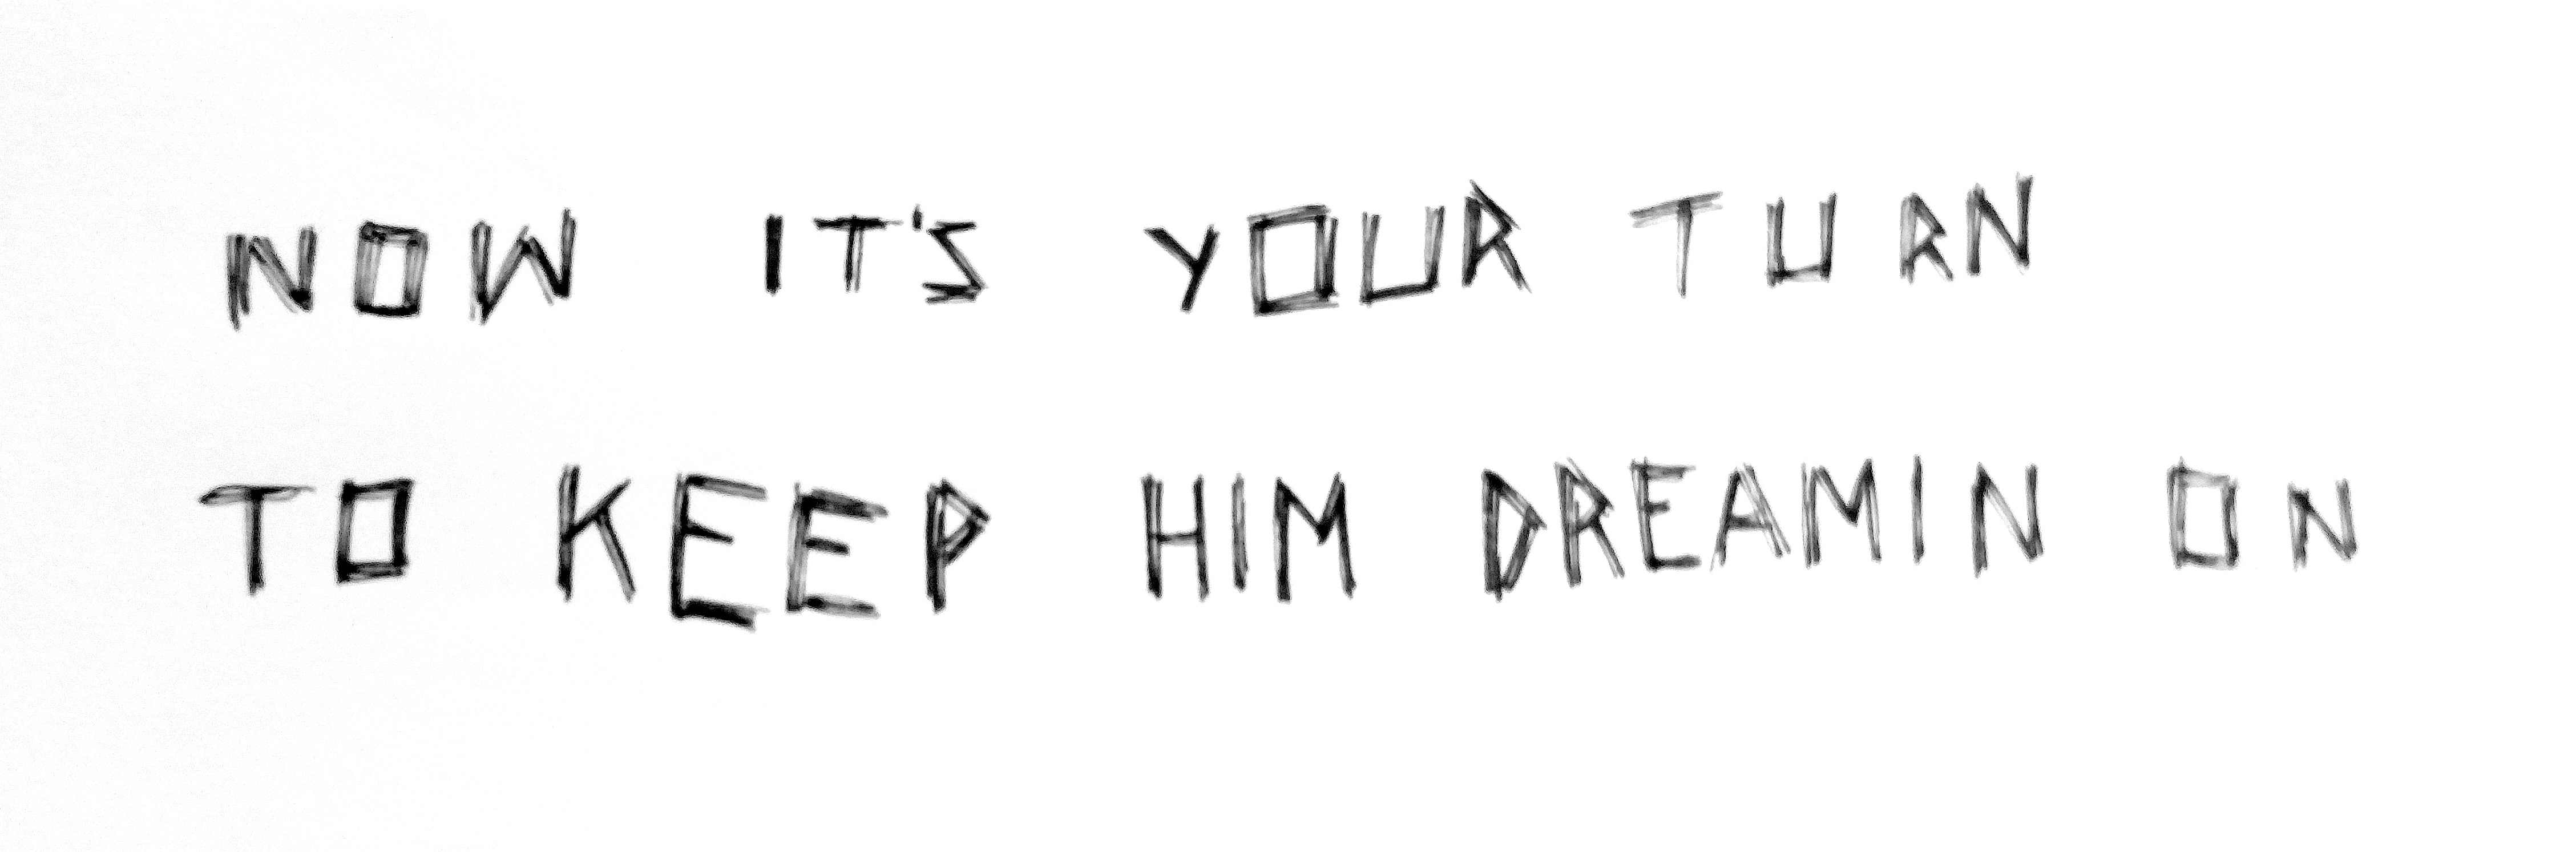 NOW IT'S YOUR TURN
TO KEEP HIM DREAMIN ON